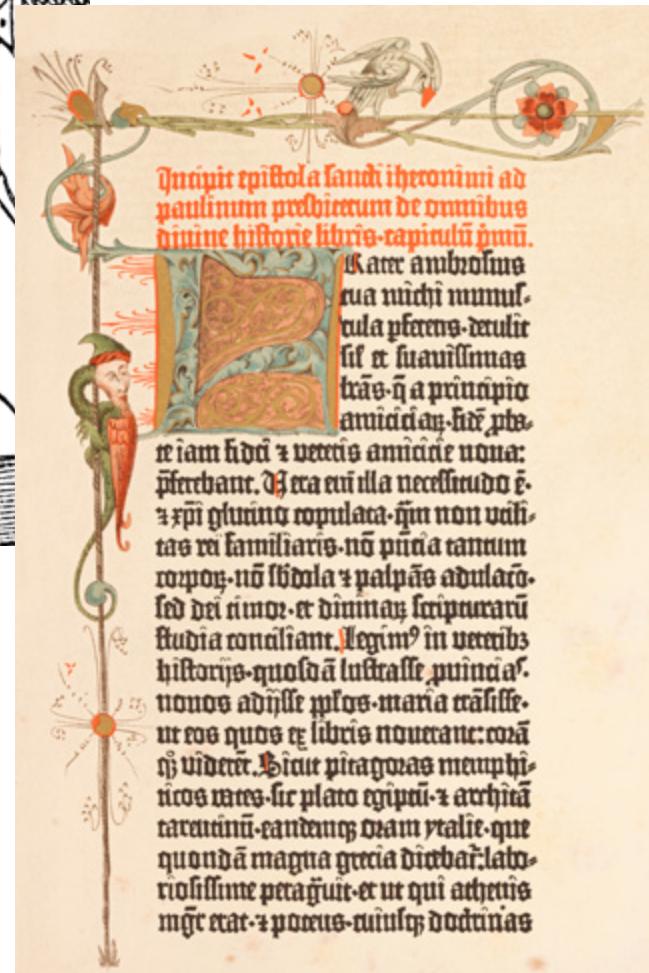 Incipit epistola sancti iheronimi ad
paulinum presbiterum de omnibus
diuine historie libris·capitulū pͥmū.
FRater ambrosius
tua michi munus-
cula ꝑferens·detulit
sil̄ et suauissimas
lrās·q̄ a principio
amiciciaꝝ·fidē ꝓba-
te iam fidei ⁊ veteris amicicie noua:
p̄ferebant. Uera eni̅ illa necessitudo ē·
⁊ xp̄i glutino copulata·qm̄ non vtili-
tas rei familiaris·nō pn̄cia tantum
corpoꝝ·nō sb̄dola ⁊ palpās adulacō·
sed dei timor·et diuinaꝝ scripturarū
studia conciliant. Legim⁹ in veteribꝫ
historijs·quosdā lustrasse ꝓuincias·
nouos adijsse ppl̄os·maria trāsisse·
ut eos quos ex libris nouerant: corā
qꝫ viderēt. Sicut pitagoras memphi-
ticos vates·sic plato egiptū·⁊ architā
tarentinū·eandemqꝫ oram ytalie·que
quondā magna grecia dicebat̄: labo-
riosissime peragͣuit·et ut qui athenis
mgr̄ erat·⁊ potens·cuiusqꝫ doctrinas